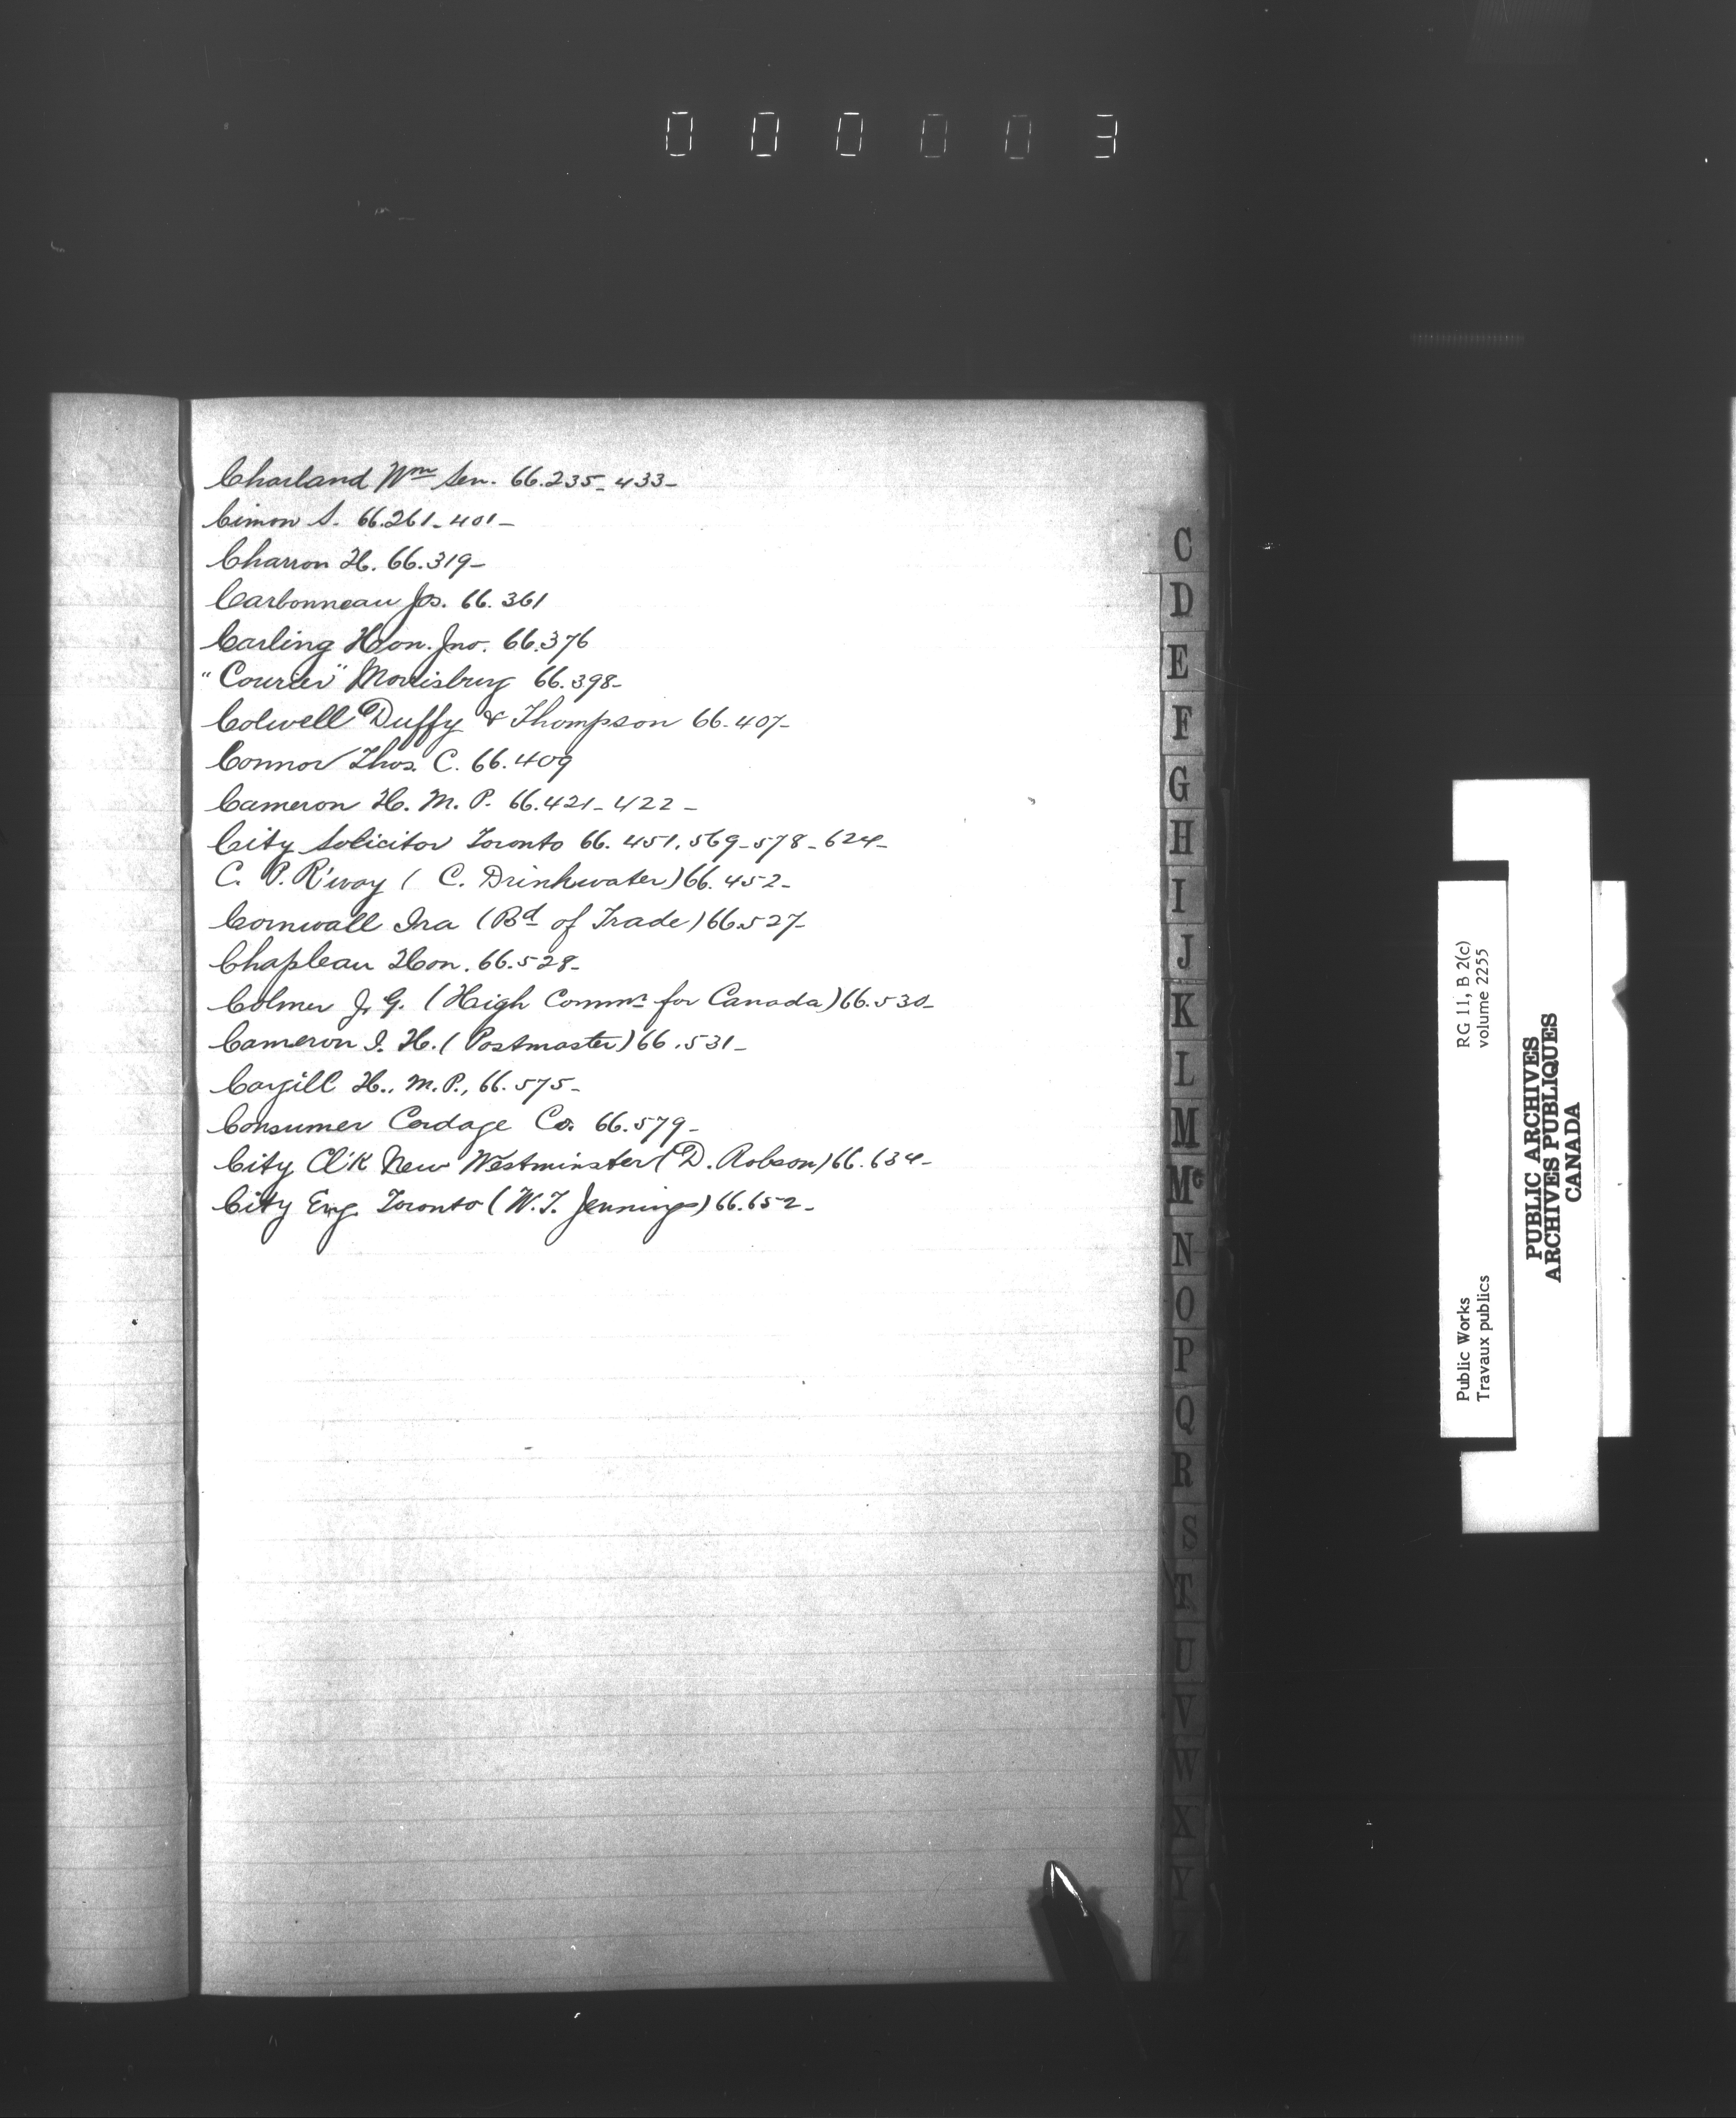 000003
Charland Wm Sen. 66.235-433-
Cimon S. 66.261-401-
Charron H. 66.319-
Carbonneau Jos. 66.361
Carling Hon. Jno. 66.376
"Courier" Morrisburg 66.398-
Colwell Duffy & Thompson 66.407-
Connor Thos. C. 66.409
Cameron H. M. P. 66.421-422-
City Solicitor Toronto 66.451.569-578-624-
C. P. R'way (C. Drinkwater) 66.452-
Cornwall Ira (Bd of Trade) 66.527-
Chapleau Hon. 66.528-
Colmer J. G. (High Commr for Canada) 66.530-
Cameron I. H. (Postmaster) 66.531-
Cargill H., M.P., 66.575-
Consumer Cordage Co. 66.579-
City Cl'k New Westminster (D. Robson) 66.634-
City Eng. Toronto (W. T. Jennings) 66.652-
C
D
E
F
G
H
I
J
K
L
M
Mc
N
O
P
Q
R
S
T
U
V
W
X
Y
Z
Public Works
Travaux publics
RG 11, B 2(c)
volume 2255
PUBLIC ARCHIVES
ARCHIVES PUBLIQUES
CANADA